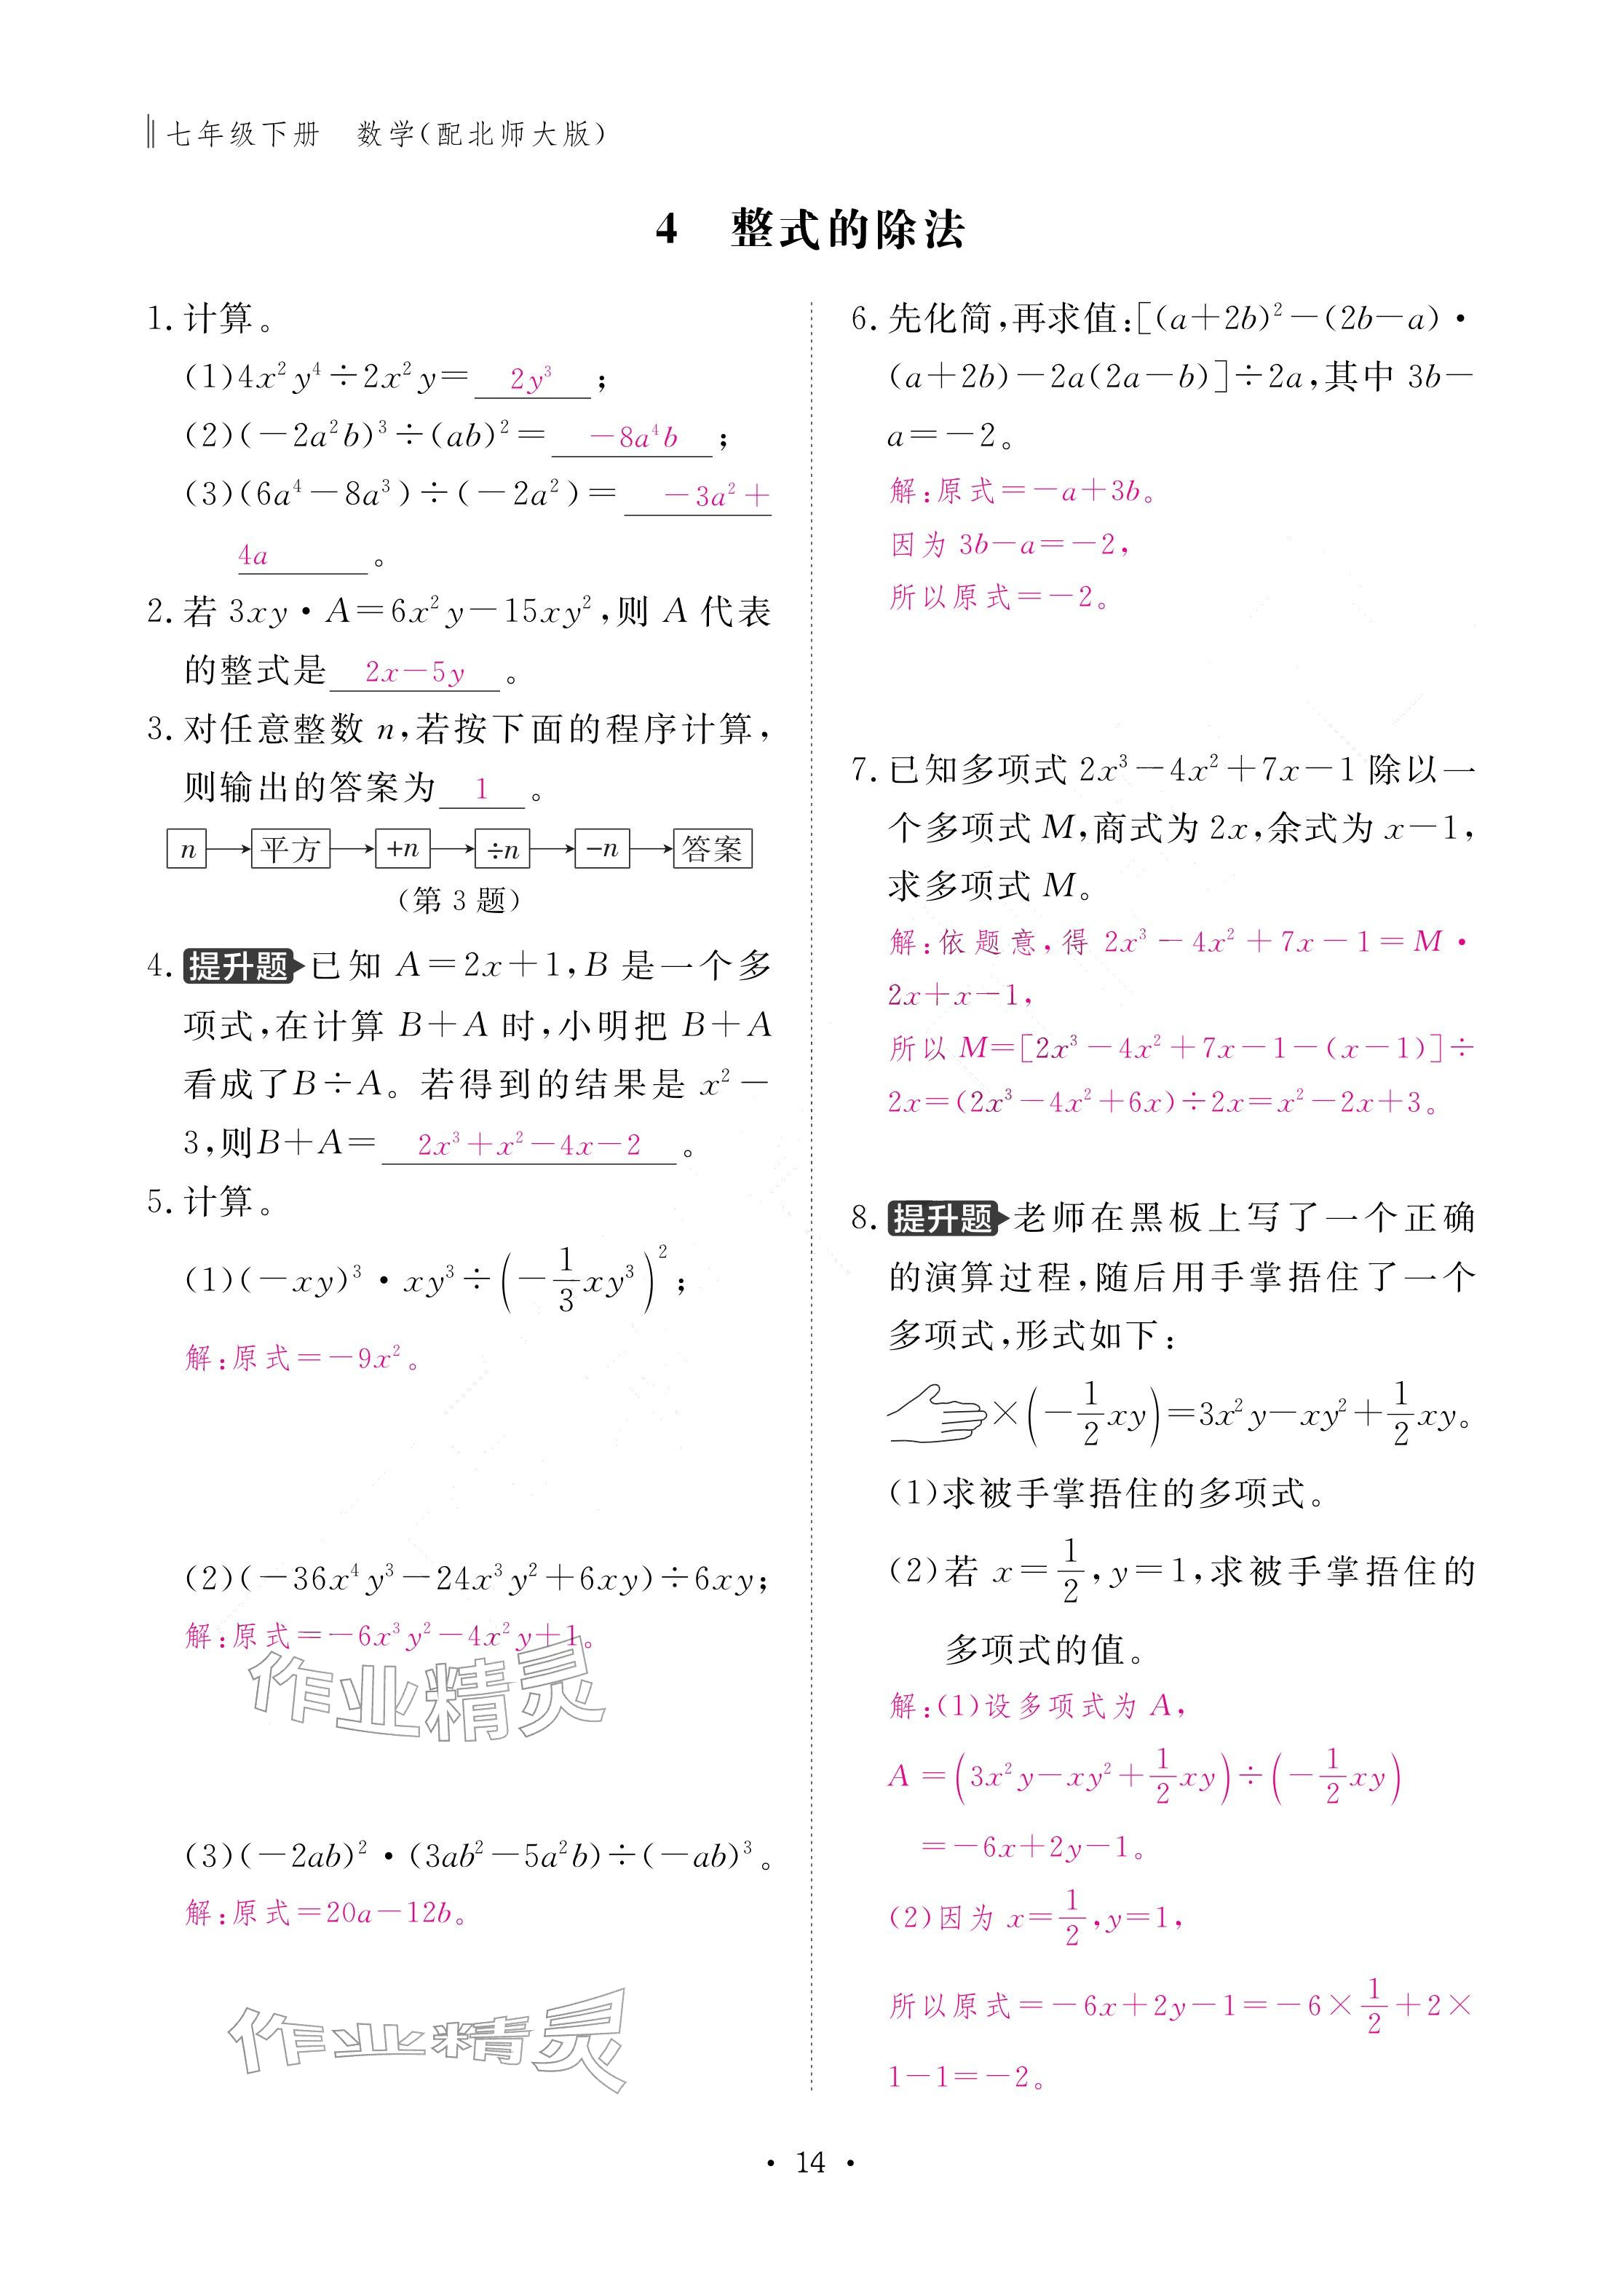 七年级下册　数学(配北师大版)
4　整式的除法
1. 计算。
(1)4x²y⁴÷2x²y= 2y³ ;
(2)(－2a²b)³÷(ab)²= －8a⁴b ;
(3)(6a⁴－8a³)÷(－2a²)= －3a²＋
4a 。
2. 若 3xy·A=6x²y－15xy²,则 A 代表
的整式是 2x－5y 。
3. 对任意整数 n,若按下面的程序计算,
则输出的答案为 1 。
n → 平方 → +n → ÷n → −n → 答案
(第 3 题)
4. 提升题 已知 A=2x+1,B 是一个多
项式,在计算 B+A 时,小明把 B+A
看成了B÷A。若得到的结果是 x²－
3,则B+A= 2x³+x²－4x－2 。
5. 计算。
(1)(－xy)³·xy³÷(－1/3xy³)²;
解:原式=－9x²。
(2)(－36x⁴y³－24x³y²+6xy)÷6xy;
解:原式=－6x³y²－4x²y+1。
作业精灵
(3)(－2ab)²·(3ab²－5a²b)÷(－ab)³。
解:原式=20a－12b。
作业精灵
6. 先化简,再求值:[(a+2b)²－(2b－a)·
(a+2b)－2a(2a－b)]÷2a,其中 3b－
a=－2。
解:原式=－a+3b。
因为 3b－a=－2,
所以原式=－2。
7. 已知多项式 2x³－4x²+7x－1 除以一
个多项式 M,商式为 2x,余式为 x－1,
求多项式 M。
解:依题意,得 2x³－4x²+7x－1=M·
2x+x－1,
所以 M=[2x³－4x²+7x－1－(x－1)]÷
2x=(2x³－4x²+6x)÷2x=x²－2x+3。
8. 提升题 老师在黑板上写了一个正确
的演算过程,随后用手掌捂住了一个
多项式,形式如下:
×(－1/2xy)=3x²y－xy²+1/2xy。
(1)求被手掌捂住的多项式。
(2)若 x=1/2,y=1,求被手掌捂住的
多项式的值。
解:(1)设多项式为 A,
A=(3x²y－xy²+1/2xy)÷(－1/2xy)
=－6x+2y－1。
(2)因为 x=1/2,y=1,
所以原式=－6x+2y－1=－6×1/2+2×
1－1=－2。
• 14 •